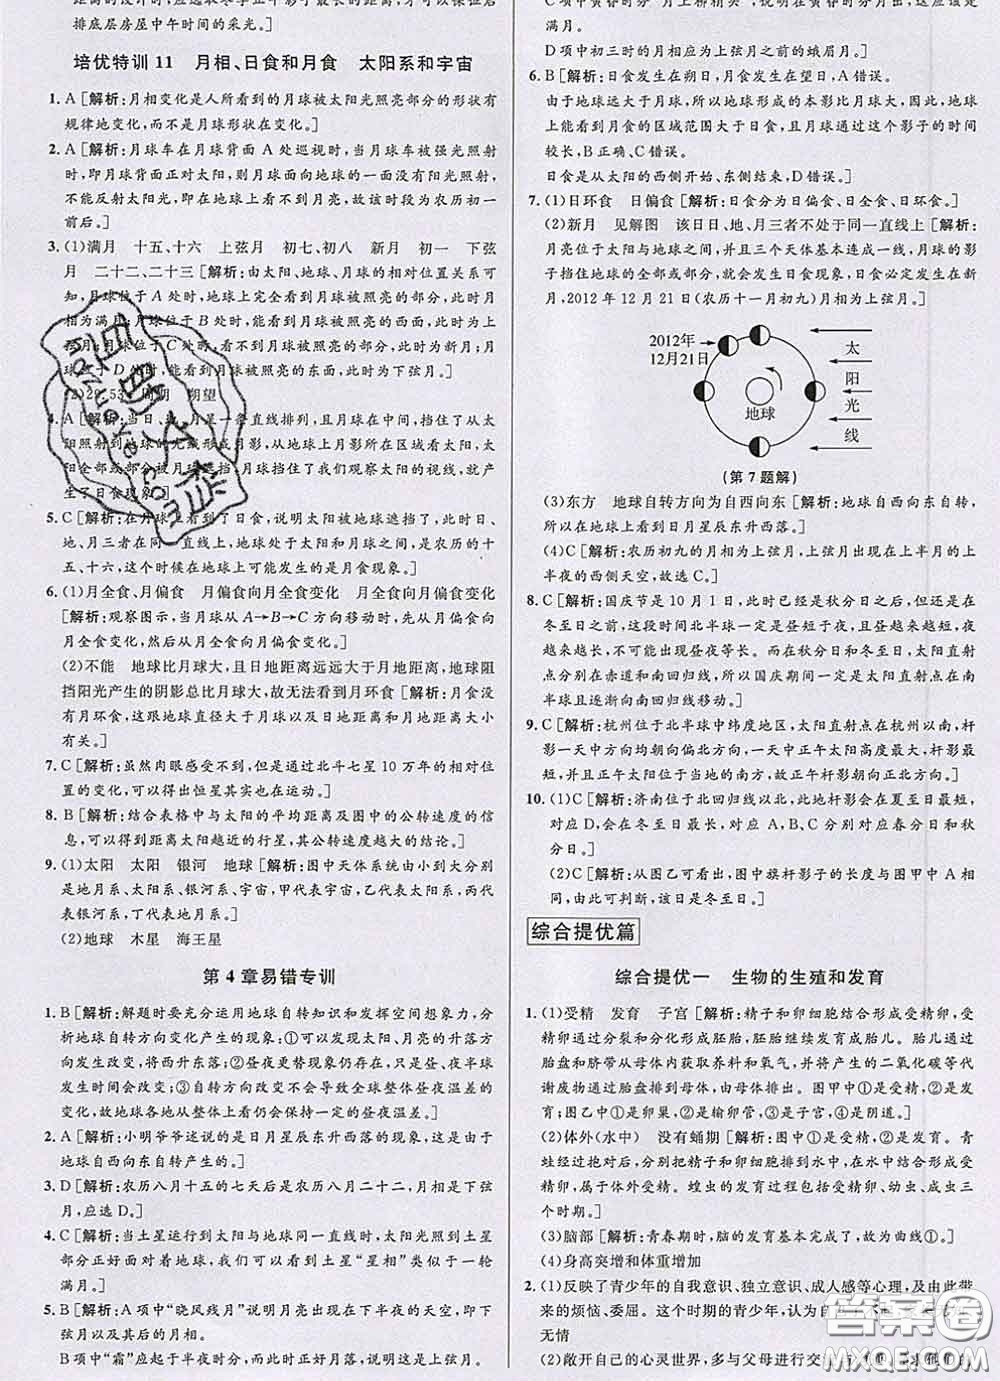 排底层房屋中午时间的采光。]
培优特训11 月相、日食和月食 太阳系和宇宙
1. A[解析:月相变化是人所看到的月球被太阳光照亮部分的形状有
规律地变化,而不是月球形状在变化。]
2. A[解析:月球车在月球背面A处巡视时,当月球车被强光照射
时,即月球背面正对太阳,则月球面向地球的一面没有光照射,不
能发生反射太阳光,在地球上看不到月亮,故该时段为农历初一
前后。]
3. (1)满月 十五、十六 上弦月 初七、初八 新月 初一 下弦
月 二十二、二十三[解析:由太阳、地球、月球的相对位置关系可
知,月球位于A处时,地球上完全看到月球被照亮的部分,此时月
相为满月;月球位于B处时,能看到月球被照亮的西面,此时为上
弦月;月球位于C处时,看不到月球被照亮的部分,此时为新月;月
球位于D处时,能看到月球被照亮的东面,此时为下弦月。]
(2)29.53 周期 朔望
4. A[解析:当日、地、月呈一条直线排列,且月球在中间,挡住了从太
阳照射到地球的光线形成月影,从地球上月影所在区域看太阳,太
阳全部或或部分被月球遮挡;月球挡住了我们观察太阳的视线,就产
生了日食现象。]
5. C[解析:在月球上看到了日食,说明太阳被地球遮挡了,此时日、
地、月三者在同一直线上,地球大约处于日月中间,是农历的十
五、十六,这个时候在地球上可能发生的是月食现象。]
6. (1)月全食、月偏食 月偏食向月全食变化 月全食向月偏食变化
[解析:观察图示,当月球从A→B→C方向移动时,先从月偏食向
月全食变化,然后从月全食向月偏食变化。]
(2)不能 地球比月球大,且日地距离远远大于月地距离,地球阻
挡阳光产生的阴影总比月球大,故无法看到月环食[解析:月食没
有月环食,这跟地球直径大于月球以及日地距离和月地距离大小
有关。]
7. C[解析:虽然肉眼感受不到,但是通过北斗七星10万年的相对位
置的变化,可以得出恒星其实也在运动。]
8. B[解析:结合表格中与太阳的平均距离及图中的公转速度的信
息,可以得到距离太阳越近的行星,其公转速度越大的结论。]
9. (1)太阳 太阳 银河 地球[解析:图中天体系统由小到大分别
是地月系、太阳系、银河系、宇宙,甲代表宇宙,乙代表太阳系,丙代
表银河系,丁代表地月系。]
(2)地球 木星 海王星
第4章易错专训
1. B[解析:解题时要充分运用地球自转知识和发挥空间想象力,分
析地球自转方向变化产生的现象:①可以发现太阳、月亮的升落方
向发生改变,将西升东落;②昼夜更替现象仍存在,只是昼、夜半球
发生时间会改变;③自转方向改变不会导致全球整体昼夜温差的
变化,故地球各地从整体上看仍会保持一定的昼夜温差。]
2. A[解析:小明爷爷述说的是日月星辰东升西落的现象,这是由于
地球自西向东自转产生的。]
3. D[解析:农历八月十五的七天后是农历八月二十二,月相是下弦
月,应选D。]
4. C[解析:当土星运行到太阳与地球同一直线时,太阳照亮的土星
部分正好面对着地球,我们看到土星“星相”类似于一轮
满月。]
5. B[解析:A项中“晓风残月”说明月亮出现在下半夜的天空,即下
弦月以及以后的月相。
B项中“霜”应起于半夜时分,半夜时分落下的月相是上弦月。
C项中“黄昏时分”“月上柳梢头”,说明在黄昏时分月出,应为
满月。
D项中初三时的月相应为上弦月之前的蛾眉月。]
6. B[解析:日食发生在朔日,月食发生在望日,A错误。
由于地球远大于月球,所以地球形成的本影比月球大,因此,地球
上能看到月食的区域范围大于日食,且月球通过这个影子的时间
较长,B正确、C错误。
日食是从太阳的西侧开始、东侧结束,D错误。]
7. (1)日环食 日偏食[解析:日食分为日偏食、日全食、日环食。]
(2)新月 见解图 该日日、地、月三者不处于同一直线上[解析:
月亮位于太阳与地球之间,并且三个天体基本连成一线,月球的影
子挡住地球的全部或部分,就会发生日食现象,日食必定发生在新
月,2012年12月21日(农历十一月初九)月相为上弦月。]
2012年
12月21日
地球
太
阳
光
线
(第7题解)
(3)东方 地球自转方向为自西向东[解析:地球自西向东自转,
所以在地球上看到日月星辰东升西落。]
(4)C[解析:农历初九的月相为上弦月,上弦月出现在上半月的上
半夜的西侧天空,故选C。]
8. C[解析:国庆节是10月1日,此时已经是秋分日之后,但还是在
冬至日之前,这段时间北半球一定是昼短于夜,且昼越来越短,夜
越来越长,不可能出现昼夜等长。而秋分日和冬至日,太阳直射
点分别在赤道和南回归线,所以国庆期间一定是太阳直射点在南
半球且逐渐向南回归线移动。]
9. C[解析:杭州位于北半球中纬度地区,太阳直射点在杭州以南,杆
影一天中方向均朝向偏北方向,一天中正午太阳高度最大,杆影最
短,正午太阳位于当地的南方,故正午杆影正好朝向正北方向。]
10. (1)C[解析:济南位于北回归线以北,此地杆影会在夏至日最短,
对应D,会在冬至日最长,对应A,B、C分别对应春分日和秋
分日。]
(2)C[解析:从图乙可看出,图中旗杆影子的长度与图甲中A相
同,由此可判断,该日是冬至日。]
综合提优篇
综合提优一 生物的生殖和发育
1. (1)受精 发育 子宫[解析:精子和卵细胞结合形成受精卵,受精
卵通过分裂和分化形成胚胎,胚胎继续发育成胎儿。胎儿通过
胎盘和脐带从母体内获取养料和氧气,并将产生的二氧化碳等代
谢废物通过胎盘排到母体,由母体排出。图甲中①是受精,②是发
育;图乙中①是卵巢,②是输卵管,③是子宫,④是阴道。]
(2)体外(水中) 没有蛹期[解析:图中①是受精,②是发育。青
蛙经过抱对后,把精子和卵细胞排到水中,在水中结合形成受精
卵,属于体外受精。蝗虫的发育过程经过受精卵、幼虫、成虫三
个时期。]
(3)脑部[解析:青春期时,脑的发育基本完成,故为曲线①。]
(4)身高突增和体重增加
2. (1)反映了青少年的自我意识、独立意识、成人感等心理,及由此带
来的烦恼、委屈。这个时期的青少年,认为自
无情
(2)敞开自己的心灵世界,多与父母进行交
答案圈
MXQE.COM